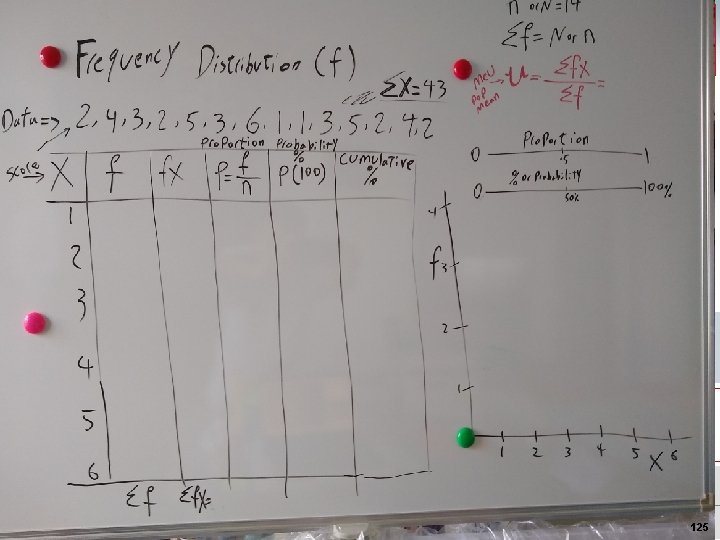 n or N=14
Σf = N or n
Frequency Distribution (f)
ΣX=43
Mew
Pop
Mean
→ u = Σfx / Σf =
Data=> 2, 4, 3, 2, 5, 3, 6, 1, 1, 3, 5, 2, 4, 2
Proportion
0 .5 1
% or Probability
0 50% 100%
Proportion Probability
score → X f fx P= f/n % P(100) Cumulative %
1
2
3
4
5
6
Σf Σfx=
4
f 3
2
1
1 2 3 4 5 6
X
125